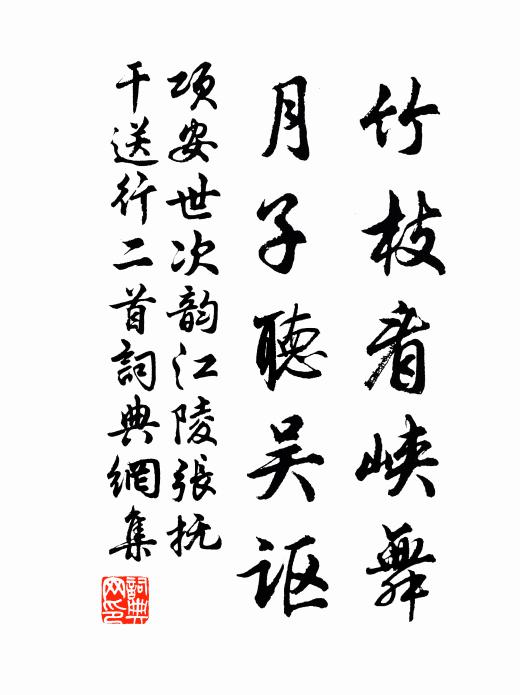 竹枝看峡舞
月子聽吴讴
项安世次韵江陵張抚
干送行二首詞典網集
詞典网印